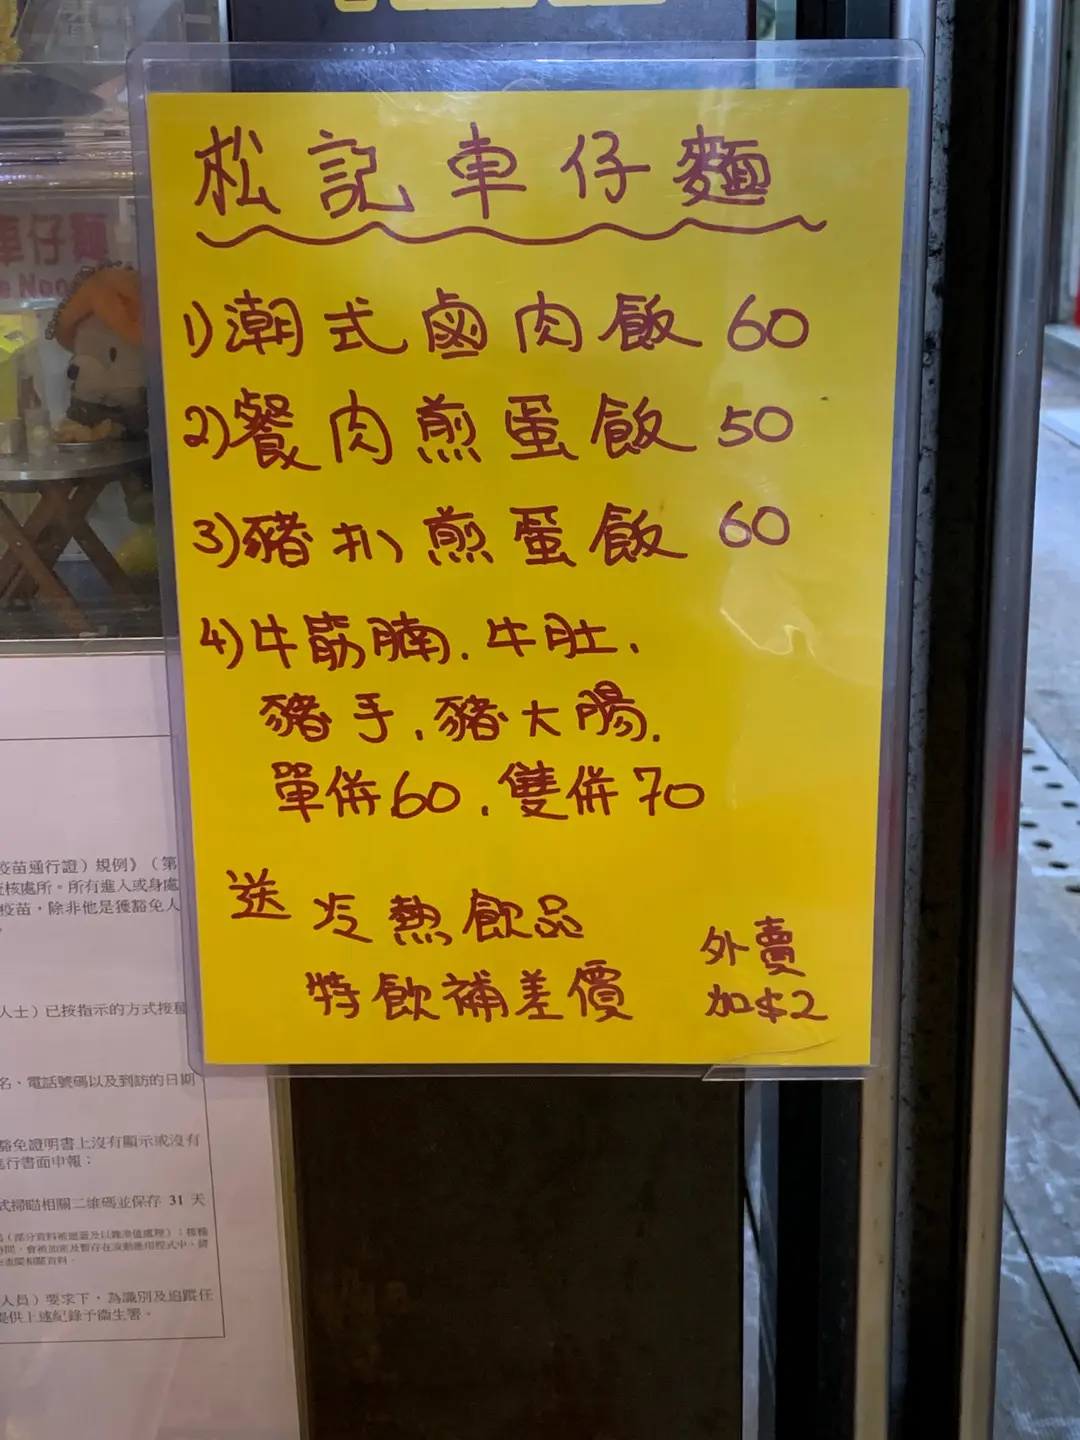 松記車仔麵
1)潮式鹵肉飯 60
2)餐肉煎蛋飯 50
3)豬扒煎蛋飯 60
4)牛筋腩.牛肚、
豬手.豬大腸.
單併60.雙併70
送 冷熱飲品
特飲補差價
外賣
加$2
車仔麵
疫苗通行證）規例》（第
核處所。所有進入或身處
疫苗，除非他是獲豁免人
人士）已按指示的方式接種
名、電話號碼以及到訪的日期
豁免證明書上沒有顯示或沒有
進行書面申報；
式掃瞄相關二維碼並保存 31 天
人員）要求下，為識別及追蹤任
提供上述紀錄予衞生署。